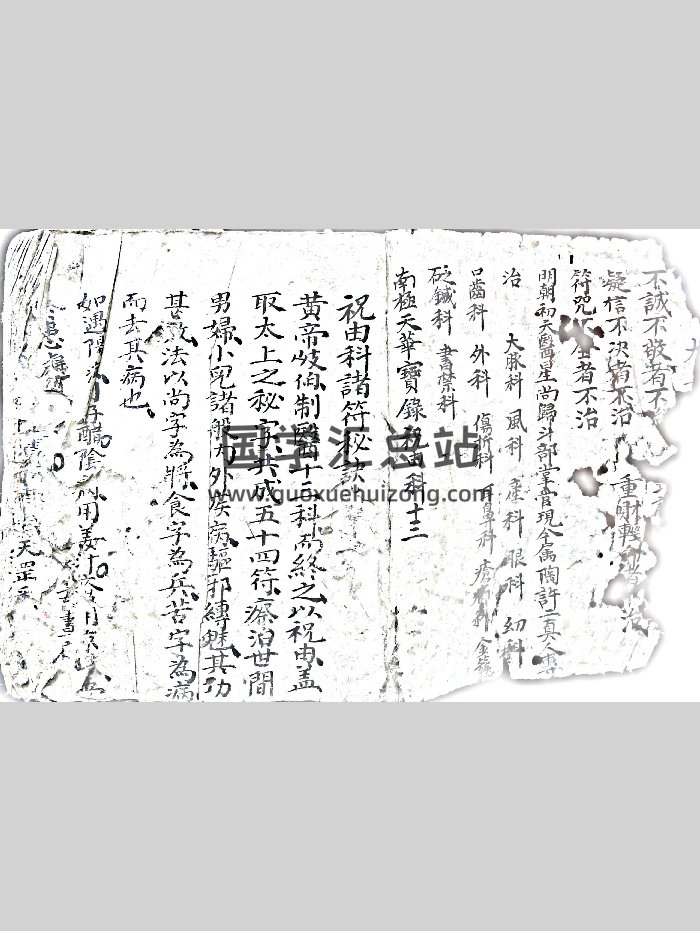 不誠不敬者不
疑信不決者不治 重財 者 治
符咒不 者不治
明朝初天醫星尚歸斗部掌管現今寓陶許二真人
治 大脉科 風科 產科 眼科 幼科
口齒科 外科 傷折科 耳鼻科 瘡 科 金鏃
砭鍼科 書禁科
南極天華寶籙祝由科十三
祝由科諸符秘訣
黄帝岐伯制醫十三科而終之以祝由蓋
取太上之秘字共成五十四符療治世間
男婦小兒諸般内外疾病驅邪縛魅其功
甚 法以尚字為將食字為兵苦字為病
而去其病也
如遇陽 醋陰 用姜汁
書
患處
天罡
国学汇总站
www.guoxuehuizong.com